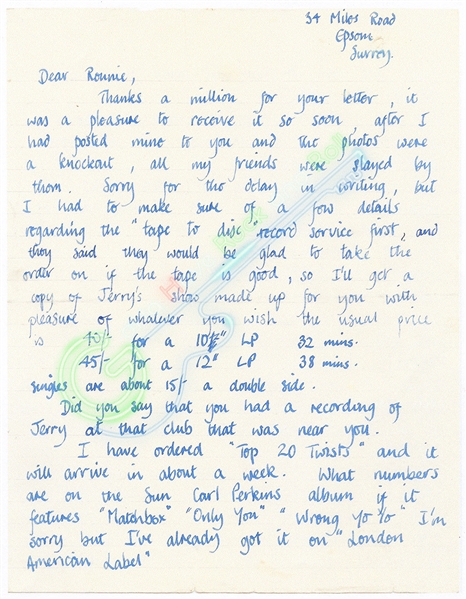 34 Miles Road
Epsom.
Surrey.
Dear Ronnie,
Thanks a million for your letter, it
was a pleasure to receive it so soon, after I
had posted mine to you and the photos were
a knockout, all my friends were slayed by
them. Sorry for the delay in writing, but
I had to make sure of a few details
regarding the "tape to disc" record service first, and
they said they would be glad to take the
order on if the tape is good, so I'll get a
copy of Jerry's show made up for you with
pleasure of whatever you wish the usual price
is 40/- for a 10" LP 32 mins.
45/- for a 12" LP 38 mins.
singles are about 15/- a double side.
Did you say that you had a recording of
Jerry at that club that was near you.
I have ordered "Top 20 Twists" and it
will arrive in about a week. What numbers
are on the Sun Carl Perkins album if it
features "Matchbox" "Only You" "Wrong Yo Yo" I'm
sorry but I've already got it on "London
American Label"